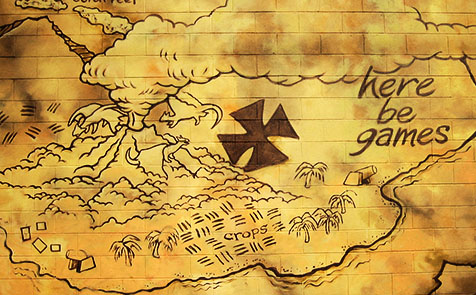 here
be
games
crops